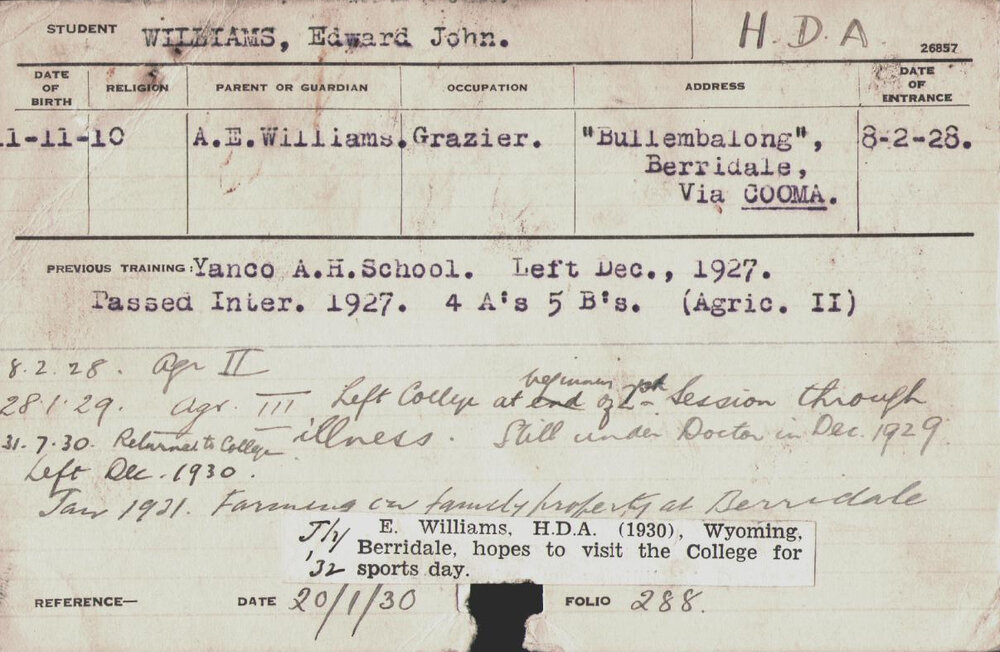 STUDENT WILLIAMS, Edward John. H.D.A. 26857
DATE OF BIRTH RELIGION PARENT OR GUARDIAN OCCUPATION ADDRESS DATE OF ENTRANCE
11-11-10 A.E.Williams. Grazier. "Bullembalong", 8-2-28.
Berridale,
Via COOMA.
PREVIOUS TRAINING: Yanco A.H.School. Left Dec., 1927.
Passed Inter. 1927. 4 A's 5 B's. (Agric. II)
8.2.28. Agr II
28.1.29. Agr. III Left College at end beginning of 2nd Session through
illness. Still under Doctor in Dec. 1929
31.7.30. Returned to College
Left Dec. 1930.
Jan 1931. Farming on family property at Berridale
E. Williams, H.D.A. (1930), Wyoming,
Berridale, hopes to visit the College for
'32 sports day.
REFERENCE— DATE 20/1/30 FOLIO 288.